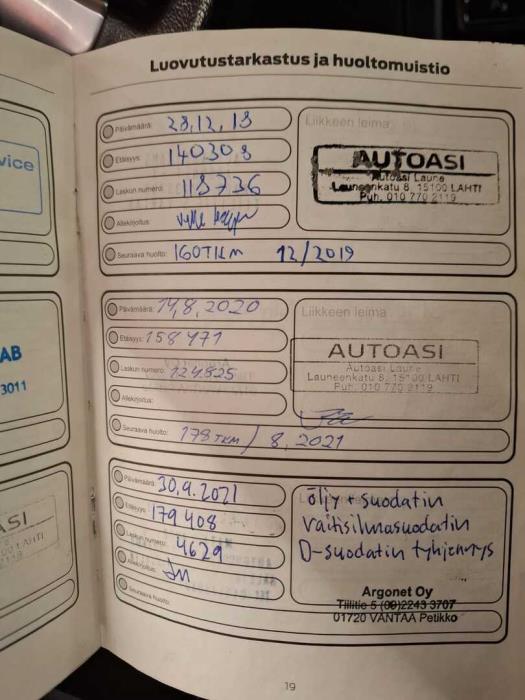 Luovutustarkastus ja huoltomuistio
vice
Päivämäärä: 28,12,18
Etäisyys: 140308
Laskun numero: 118736
Allekirjoitus:
Seuraava huolto: 160TKM 12/2019
Liikkeen leima
AUTOASI
Autoasi Laune
Launeenkatu 8, 15100 LAHTI
Puh. 010 770 2119
AB
3011
Päivämäärä: 14,8,2020
Etäisyys: 158471
Laskun numero: 124825
Allekirjoitus:
Seuraava huolto: 178TKM / 8,2021
Liikkeen leima
AUTOASI
Autoasi Laune
Launeenkatu 8, 15100 LAHTI
Puh. 010 770 2119
ASI
00 LAHTI
Päivämäärä: 30.9.2021
Etäisyys: 179408
Laskun numero: 4629
Allekirjoitus:
Seuraava huolto:
öljy + suodatin
raitisilmasuodatin
D-suodatin tyhjennys
Argonet Oy
Tillitie 5 (09)2243 3707
01720 VANTAA Petikko
19